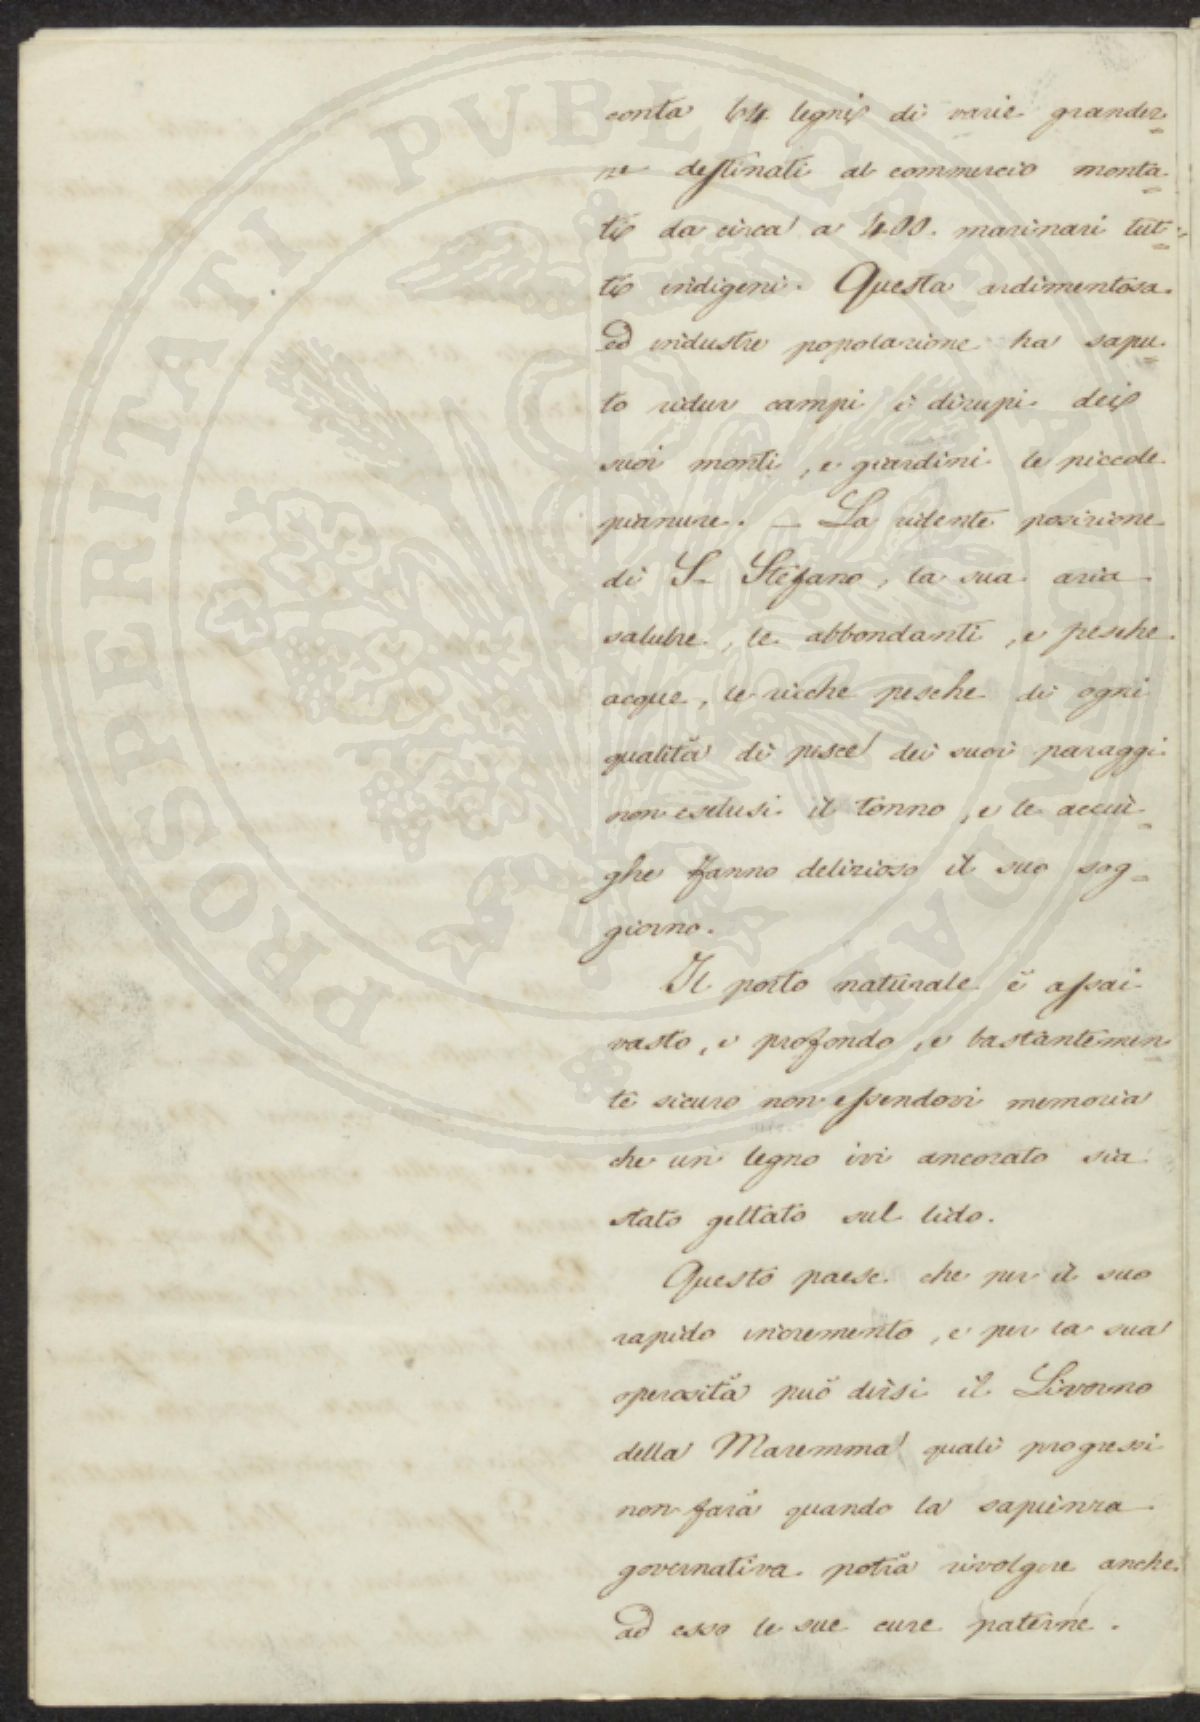 conta 64 legni di varie grandez=
ze destinati al commercio monta=
ti da circa a 400. marinari tut=
ti indigeni. Questa ardimentosa
ed industre popolazione ha sapu=
to ridur campi i dirupi dei
suoi monti, e giardini le piccole
pianure. — La ridente posizione
di S. Stefano, la sua aria
salubre, le abbondanti, e fresche
acque, le ricche pesche di ogni
qualità di pesce dei suoi paraggi
non esclusi il tonno, e le acciu=
ghe fanno delizioso il suo sog=
giorno.
Il porto naturale è assai
vasto, e profondo, e bastantemen=
te sicuro non essendovi memoria
che un legno ivi ancorato sia
stato gettato sul lido.
Questo paese che per il suo
rapido incremento, e per la sua
operosità può dirsi il Livorno
della Maremma quali progressi
non farà quando la sapienza
governativa potrà rivolgere anche
ad esso le sue cure paterne.
PROSPERITATI PVBLICAE AVGENDAE